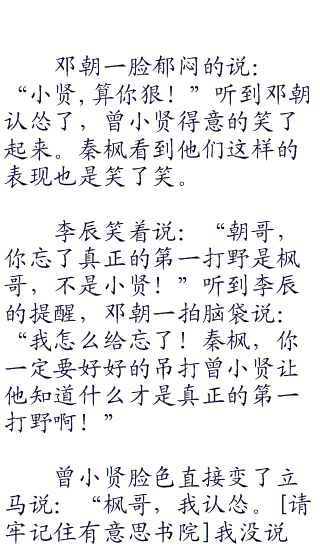 邓朝一脸郁闷的说：
“小贤,算你狠！”听到邓朝
认怂了，曾小贤得意的笑了
起来。秦枫看到他们这样的
表现也是笑了笑。
李辰笑着说：“朝哥，
你忘了真正的第一打野是枫
哥，不是小贤！”听到李辰
的提醒，邓朝一拍脑袋说：
“我怎么给忘了！秦枫，你
一定要好好的吊打曾小贤让
他知道什么才是真正的第一
打野啊！”
曾小贤脸色直接变了立
马说：“枫哥，我认怂。[请
牢记住有意思书院]我没说